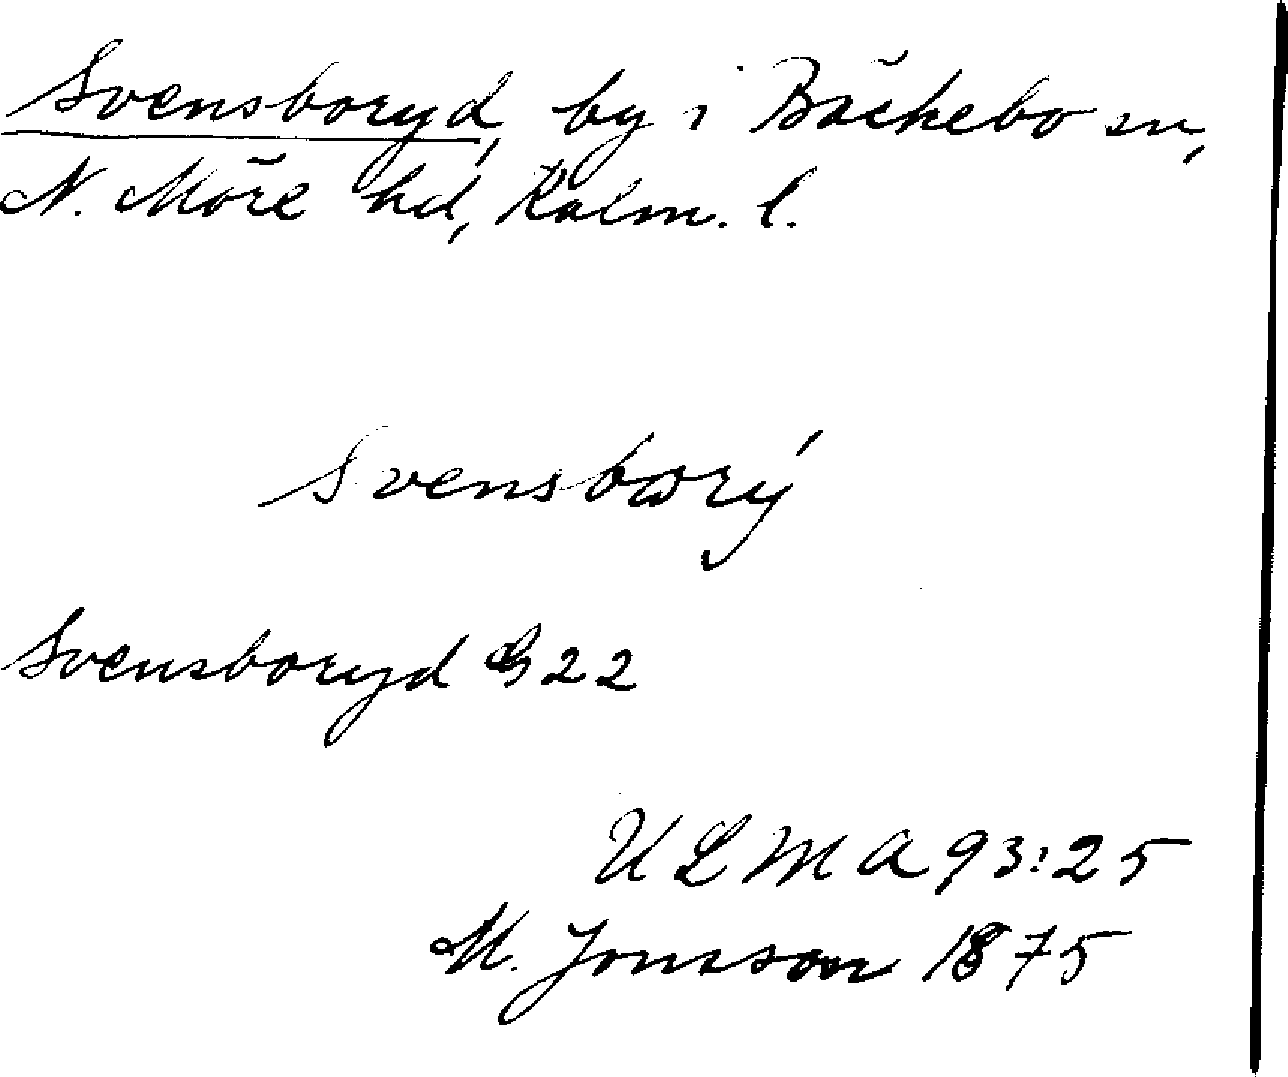 Svensboryd, by i Bäckebo sn,
N. Möre hd, Kalm. l.
Svensbωrý
Svensboryd G 22
ULMA 93:25
M. Jonsson 1875